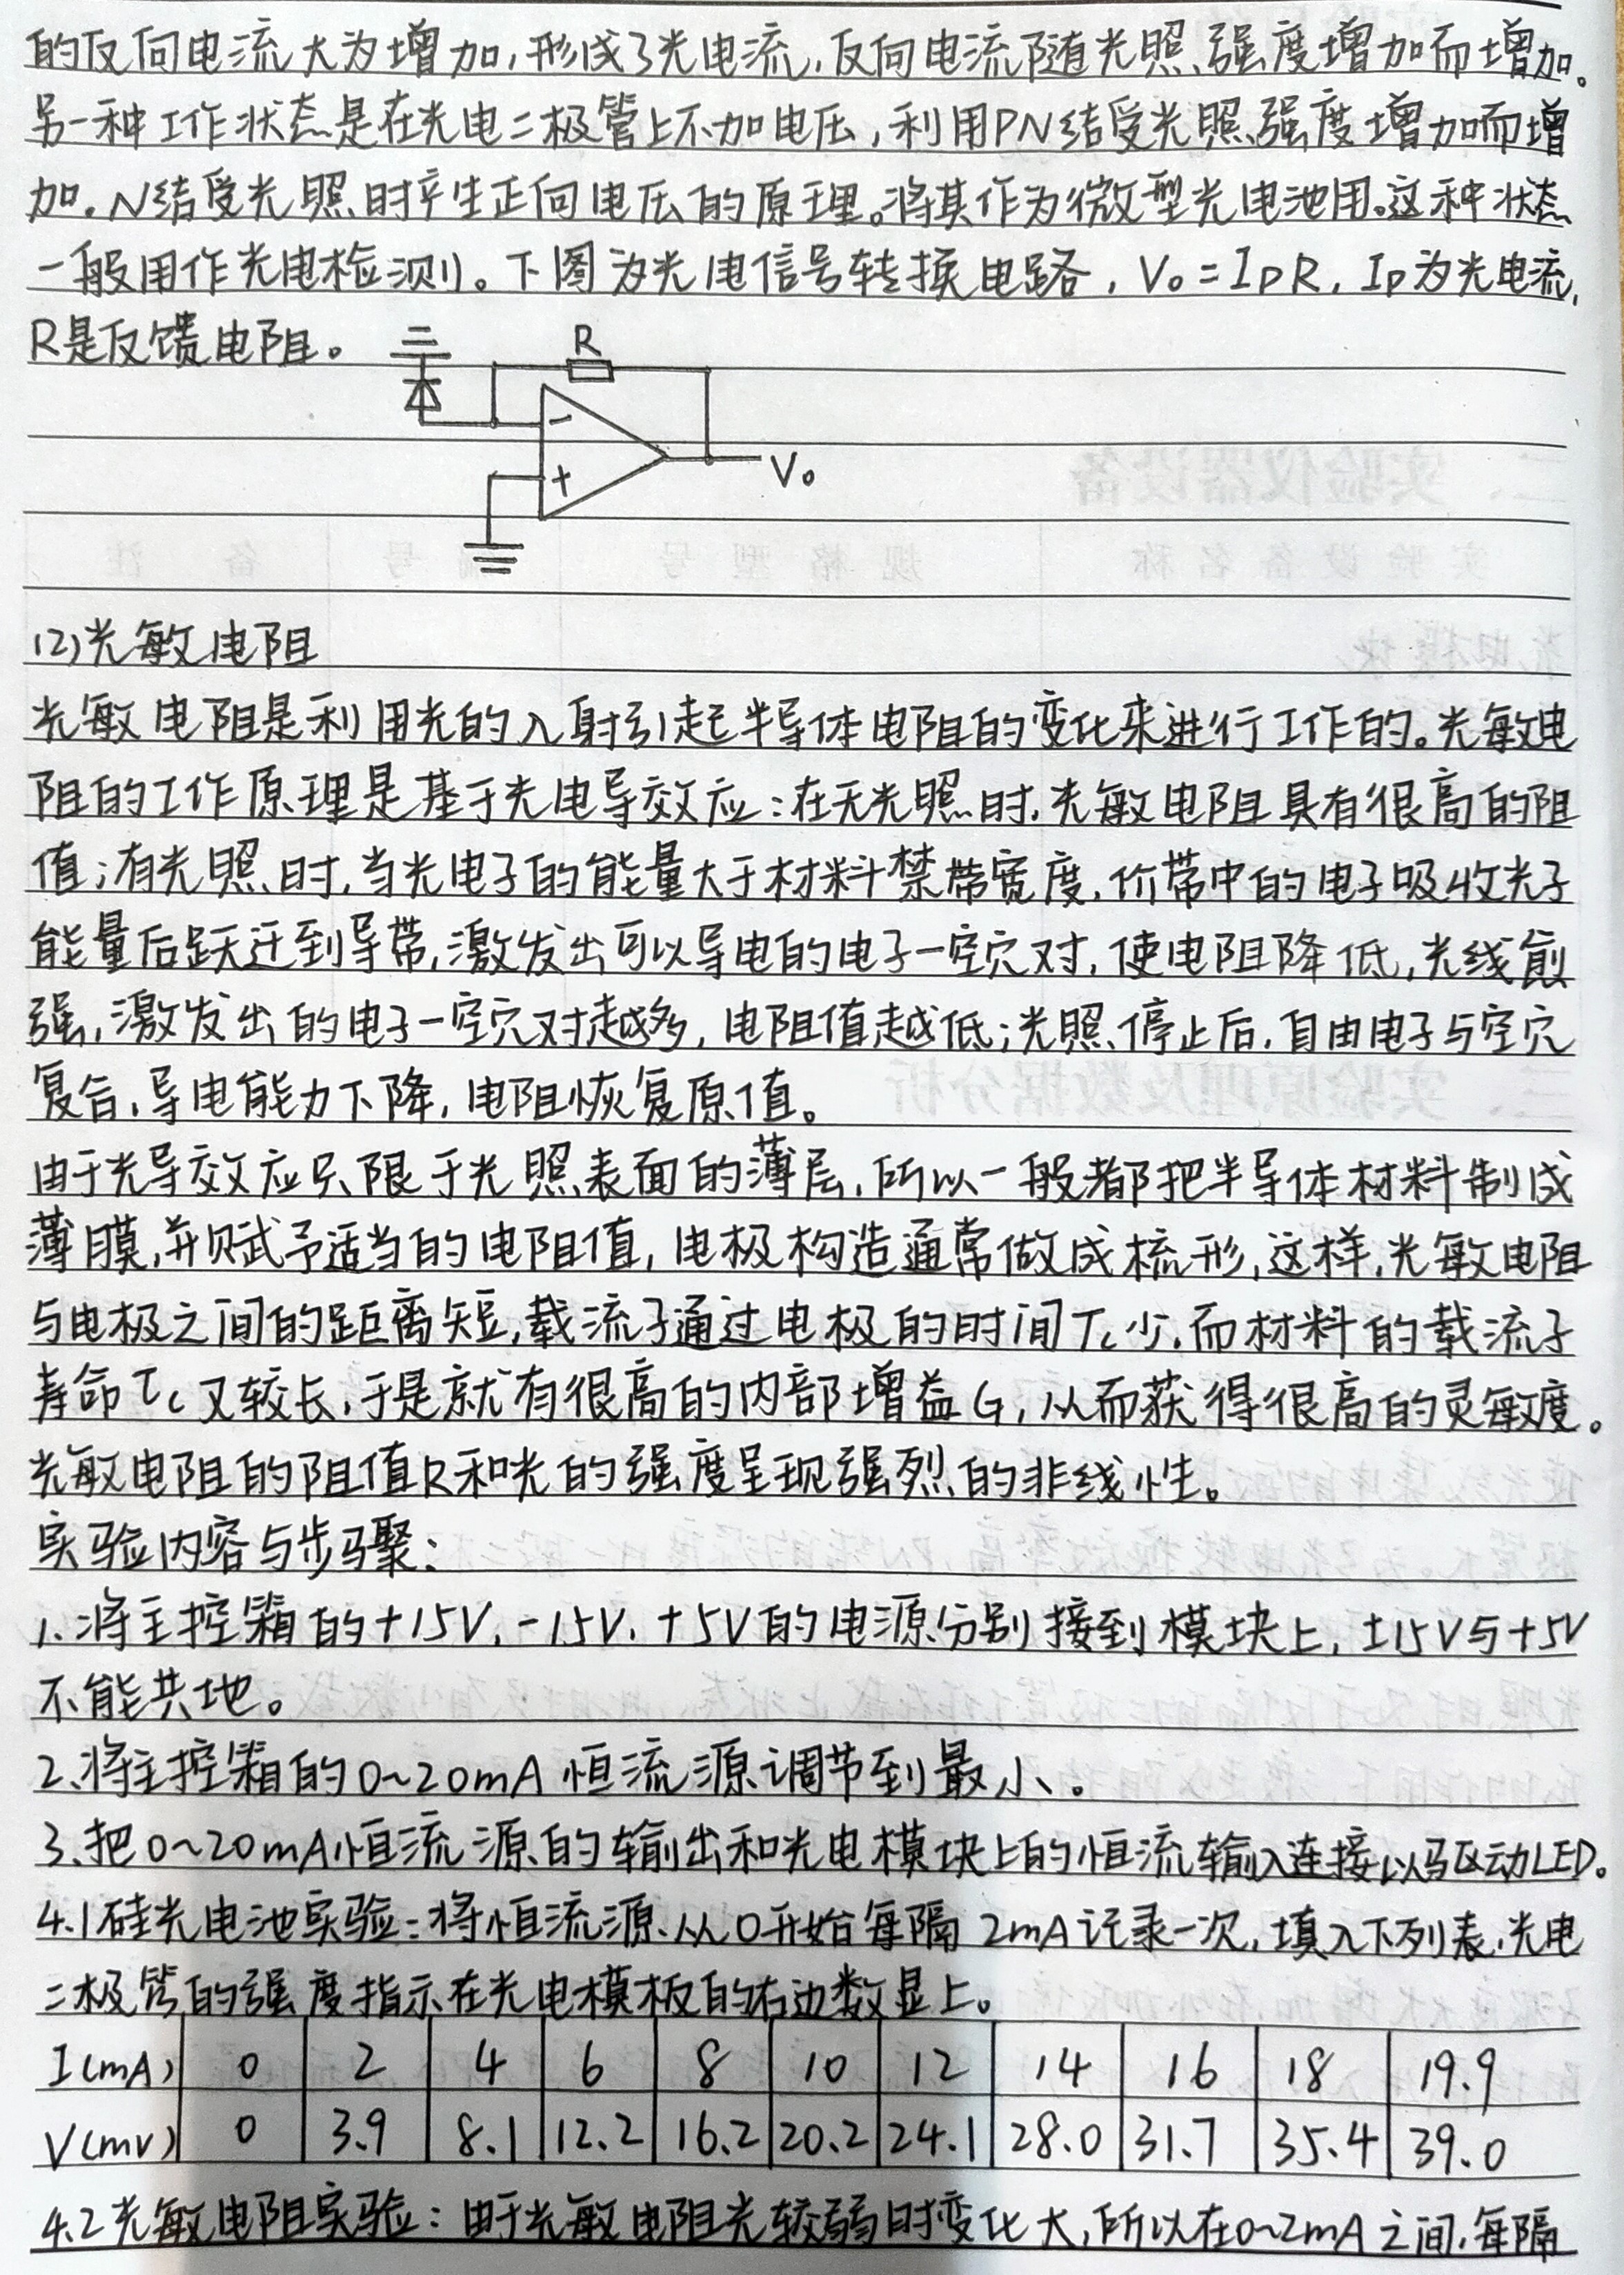 的反向电流大为增加,形成了光电流,反向电流随光照强度增加而增加。
另一种工作状态是在光电二极管上不加电压,利用PN结受光照强度增加而增
加。N结受光照时产生正向电压的原理。将其作为微型光电池用。这种状态
一般用作光电检测。下图为光电信号转换电路,V₀=IpR,Ip为光电流,
R是反馈电阻。
R
-
+
V₀
(2)光敏电阻
光敏电阻是利用光的入射引起半导体电阻的变化来进行工作的。光敏电
阻的工作原理是基于光电导效应:在无光照时,光敏电阻具有很高的阻
值;有光照时,当光电子的能量大于材料禁带宽度,价带中的电子吸收光子
能量后跃迁到导带,激发出可以导电的电子一空穴对,使电阻降低,光线愈
强,激发出的电子一空穴对越多,电阻值越低;光照停止后,自由电子与空穴
复合,导电能力下降,电阻恢复原值。
由于光导效应只限于光照表面的薄层,所以一般都把半导体材料制成
薄膜,并赋予适当的电阻值,电极构造通常做成梳形,这样,光敏电阻
与电极之间的距离短,载流子通过电极的时间Tc少,而材料的载流子
寿命τc又较长,于是就有很高的内部增益G,从而获得很高的灵敏度。
光敏电阻的阻值R和光的强度呈现强烈的非线性。
实验内容与步骤:
1.将主控箱的+15V、-15V、+5V的电源分别接到模块上,±15V与+5V
不能共地。
2.将主控箱的0~20mA恒流源调节到最小。
3.把0~20mA恒流源的输出和光电模块上的恒流输入连接以驱动LED。
4.1硅光电池实验:将恒流源从0开始每隔2mA记录一次,填入下列表,光电
二极管的强度指示在光电模板的右边数显上。
I(mA) 0 2 4 6 8 10 12 14 16 18 19.9
V(mv) 0 3.9 8.1 12.2 16.2 20.2 24.1 28.0 31.7 35.4 39.0
4.2光敏电阻实验:由于光敏电阻光较弱时变化大,所以在0~2mA之间,每隔
二、实验仪器设备
实验设备名称 规格型号 编号 备注
光电模块
三、实验原理及数据分析